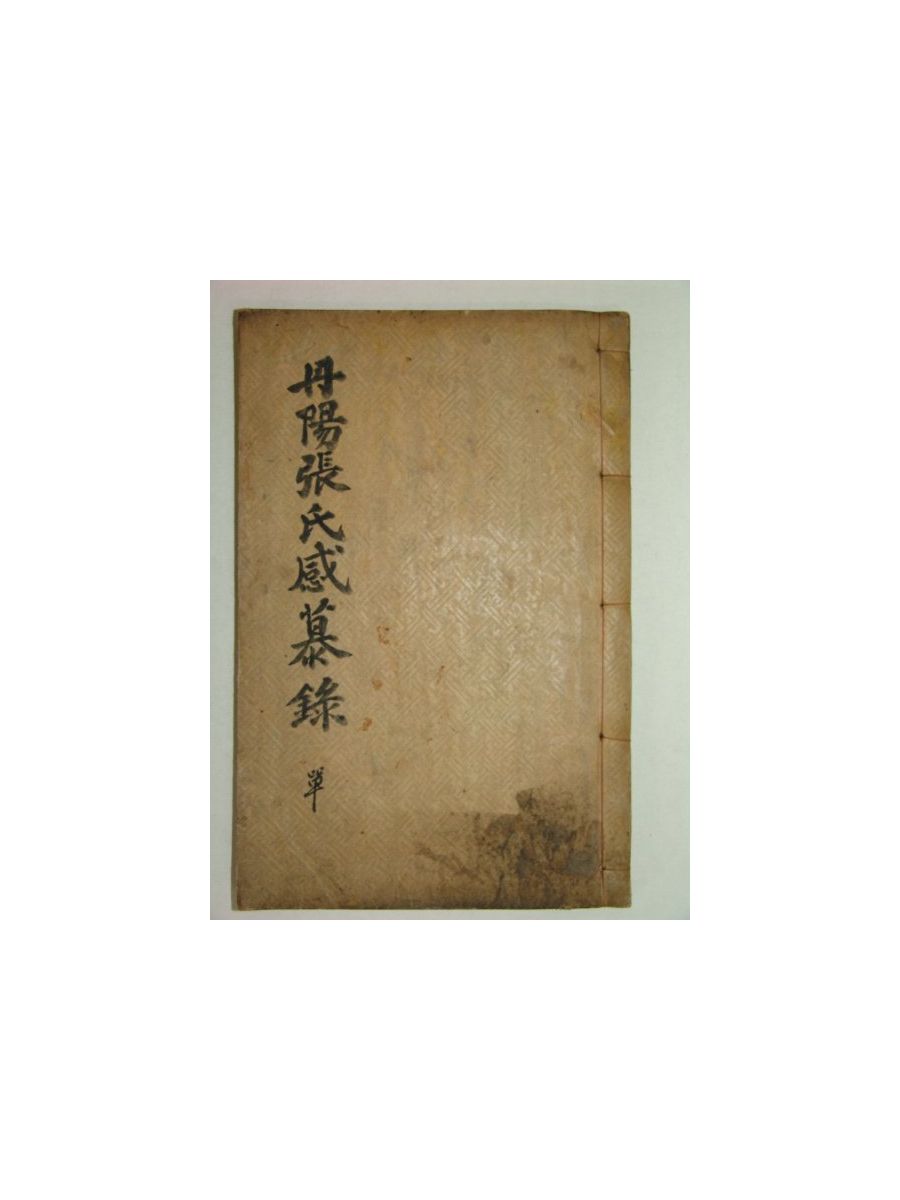 丹陽張氏感慕錄 單